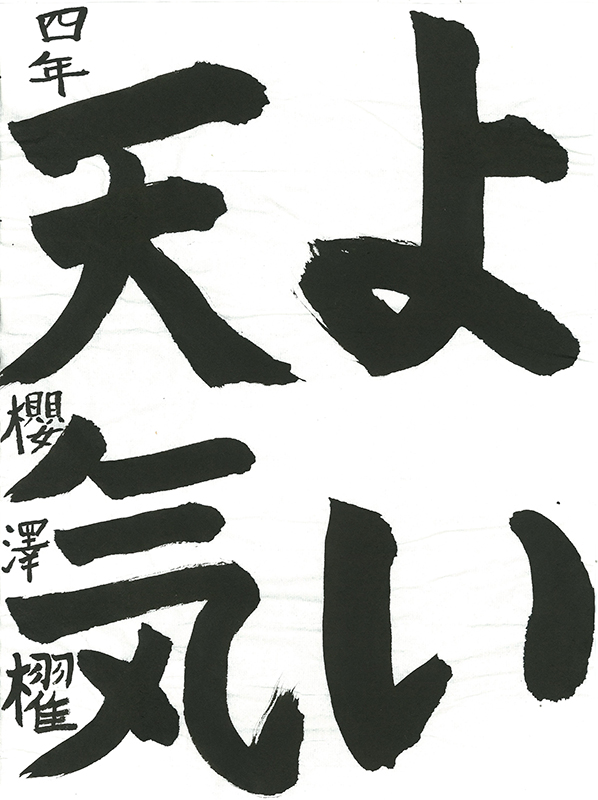 よい
天気
四年 櫻澤櫂